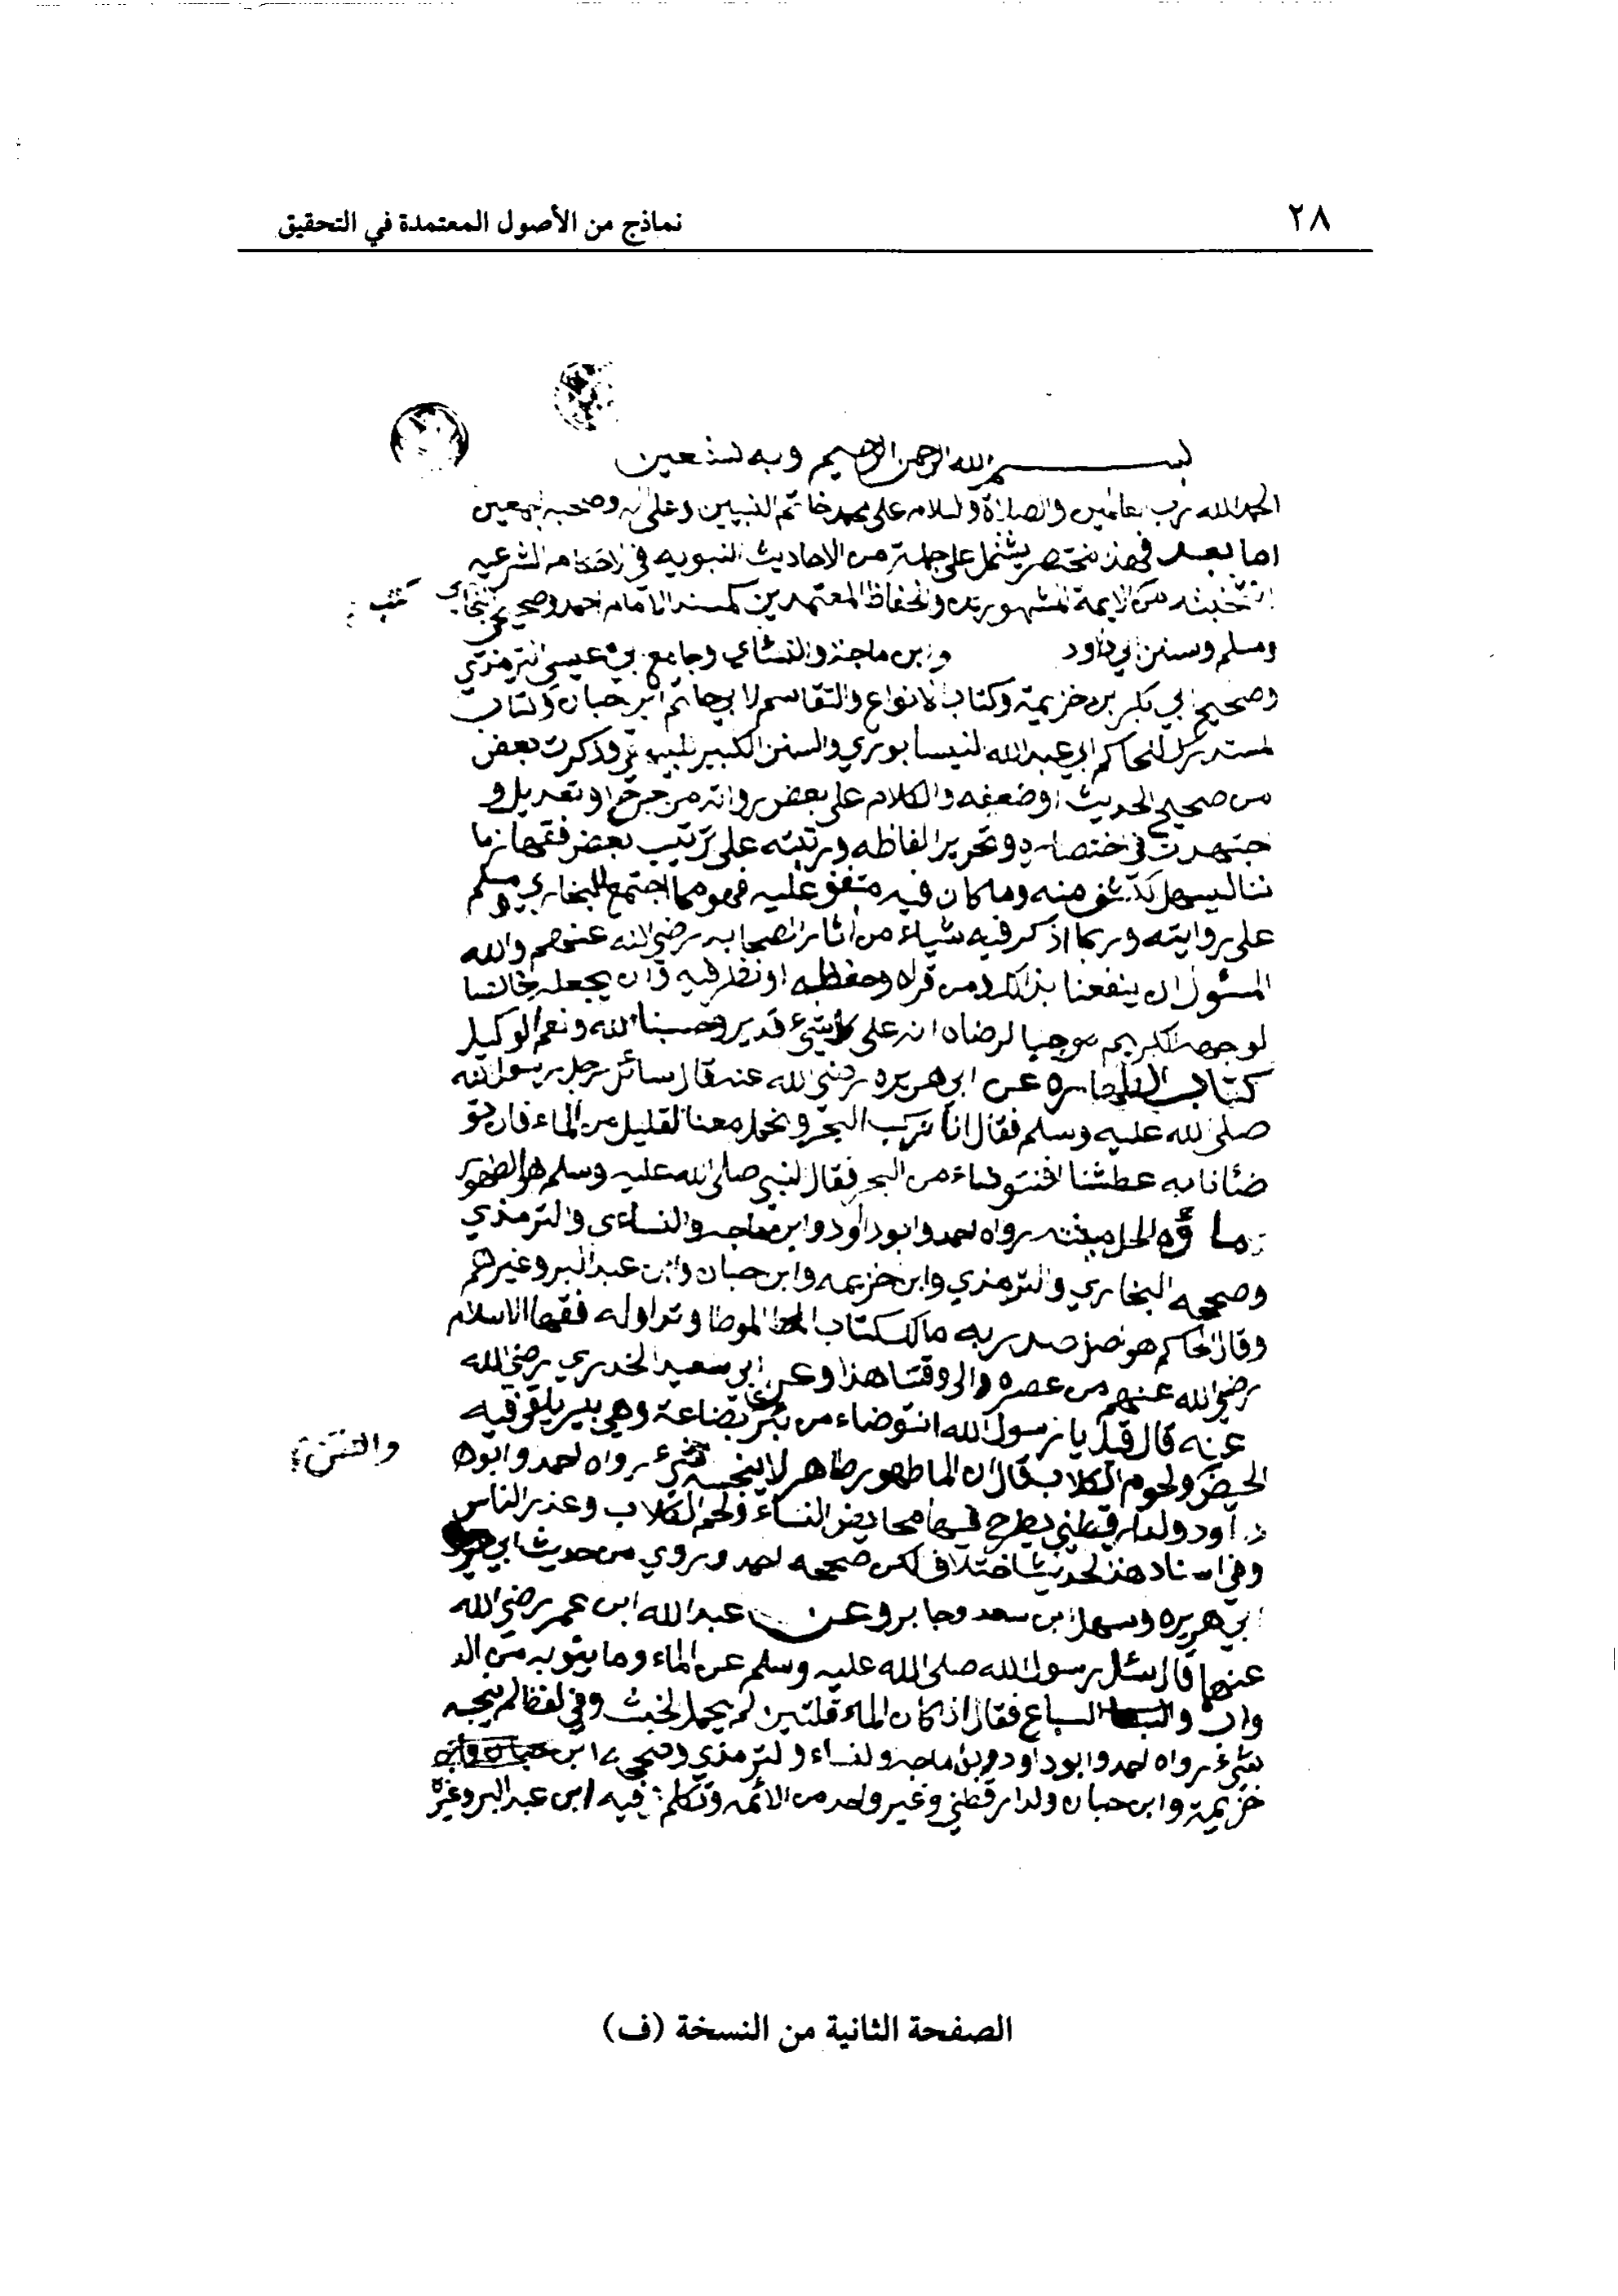 ٢٨
نماذج من الأصول المعتمدة في التحقيق
بسم الله الرحمن الرحيم وبه نستعين
الحمد لله رب العالمين والصلاة والسلام على محمد خاتم النبيين وعلى آله وصحبه اجمعين
اما بعد فهذا مختصر يشتمل على جملة من الاحاديث النبويه في الاحكام الشرعيه
انتخبته من الايمة المشهورين والحفاظ المعتمدين كمسند الامام احمد وصحيحي البخاري
كتب
ومسلم وسنن ابي داود وابن ماجة والنسائي وجامع ابي عيسى الترمذي
وصحيح ابي بكر بن خزيمة وكتاب الانواع والتقاسم لابي حاتم ابن حبان وكتاب
لمستدرك للحاكم ابي عبدالله لنيسابوري والسنن الكبير للبيهقي وذكرت بعض
من صحيح الحديث اوضعفه والكلام على بعض رواته من جرح او تعديل و
جتهدت في اختصاره وتحرير الفاظه ورتبته على ترتيب بعض فقها زما
ننا ليسهل كشف منه وما كان فيه متفق عليه فهو مما اجتمع البخاري ومسلم
على روايته وربما اذكر فيه شياء من اثار الصحابه رضي الله عنهم والله
المسئول ان ينفعنا بذالك ومن قراه وحفظه او نظر فيه وان يجعله خالصا
لوجهه الكريم موجبا لرضاه انه على كل شيء قدير وحسبنا الله ونعم الوكيل
كتاب الطهاره عن ابي هريره رضي الله عنه قال سائل رجل رسول الله
صلى الله عليه وسلم فقال انا نركب البحر ونحمل معنا القليل من الماء فان تو
ضئانا به عطشنا افنتوضاء من البحر فقال لنبي صلى الله عليه وسلم هو الطهور
ماؤه الحل ميتته رواه احمد وابوداود وابن ماجه والنساءى والترمذي
وصححه البخاري والترمذي وابن خزيمه وابن حبان وابن عبد البر وغيرهم
وقال الحاكم هو نصل صدر به مالك كتاب الموطا وتداوله فقها الاسلام
رضي الله عنهم من عصره والى وقتنا هذا وعن ابي سعيد الخدري رضي الله
عنه قال قيل يا رسول الله انتوضاء من بئر بضاعة وهي بير يلقى فيه
الحيض ولحوم الكلاب قال ان الما طهور طاهر لا ينجسه شيء رواه احمد وابو
والنتن
داود ولدارقطني يطرح فيها محايض النساء ولحم الكلاب وعذر الناس
وفي اسناد هذ لحديث اختلاف لكن صححه احمد وروي من حديث
ابي هريره وسهل ابن سعد وجابر وعن عبدالله ابن عمر رضي الله
عنهما قال سئل رسول الله صلى الله عليه وسلم عن الماء وما ينوبه من الد
واب والسباع فقال اذا كان الماء قلتين لم يحمل لخبث وفي لفظ لم ينجسه
شيء رواه احمد وابوداود وبن ماجه ولنساء ولترمذي وصححه ابن
خزيمة وابن حبان ولدارقطني وغير واحد من الائمه وتكلم فيه ابن عبد البر وغيره
الصفحة الثانية من النسخة (ف)